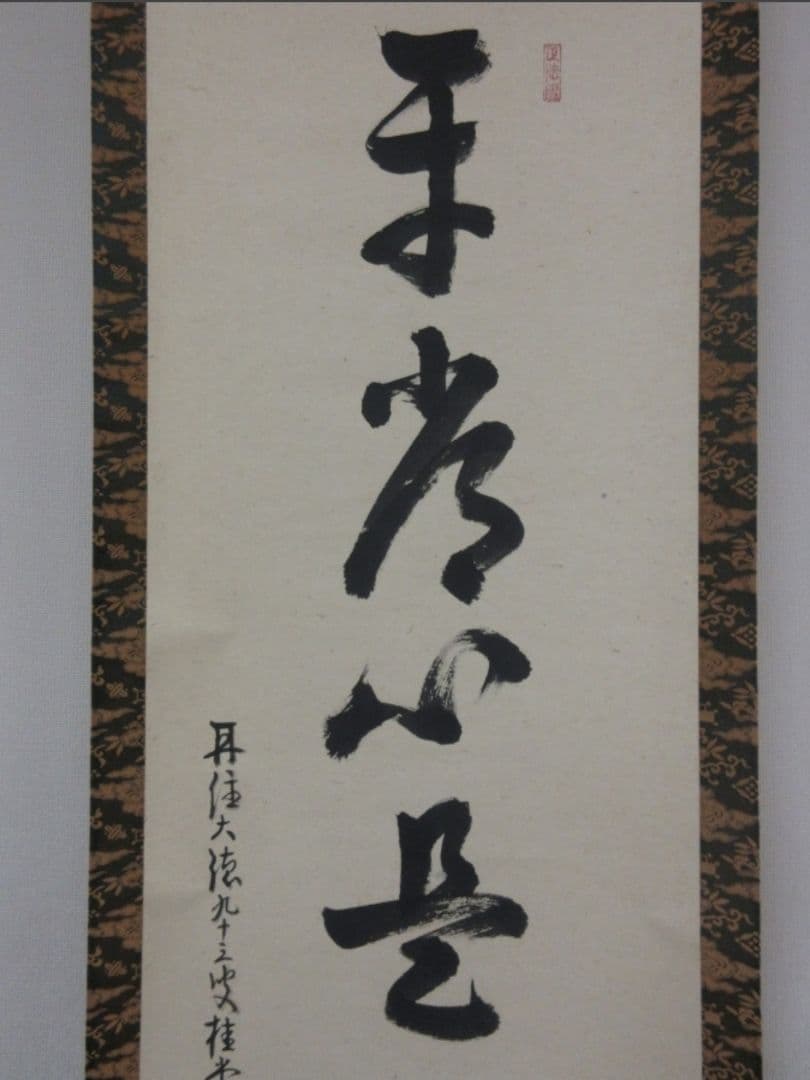 平常心是
再住大徳九十三叟桂堂